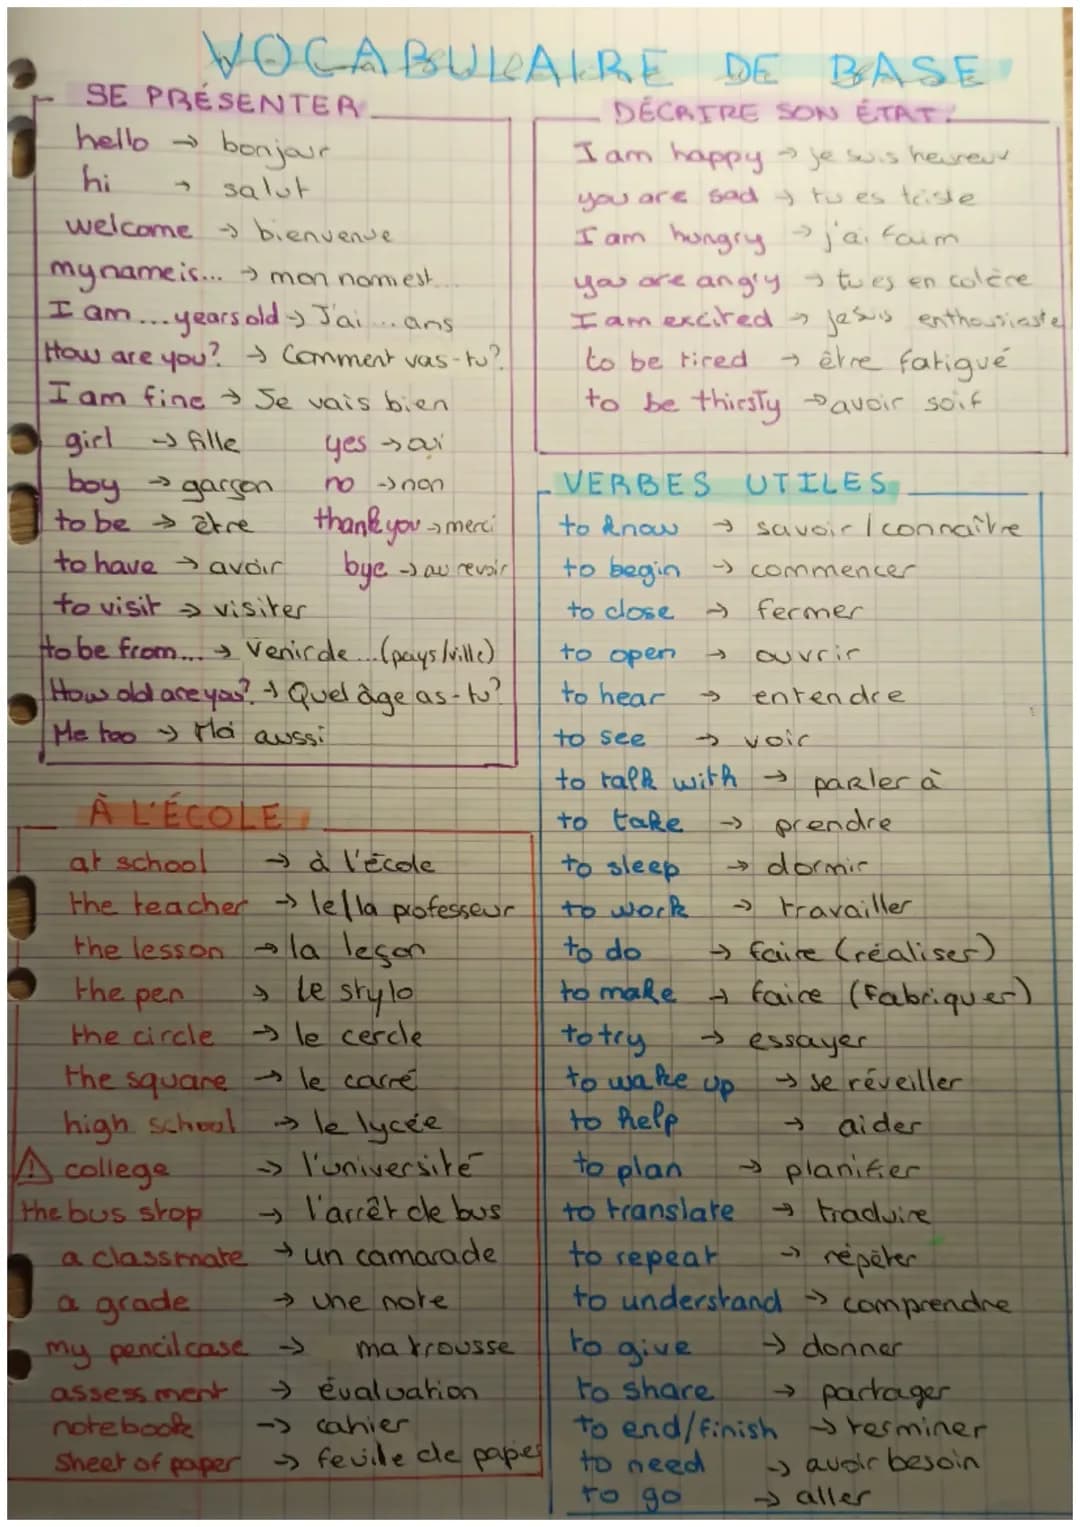 VOCABULAIRE DE BASE
SE PRÉSENTER
hello → bonjour
hi → salut
welcome → bienvenue
my name is... → mon nom est...
I am ... years old → J'ai ... ans
How are you? → Comment vas-tu?
I am fine → Je vais bien
girl → fille yes → oui
boy → garçon no → non
to be → être thank you → merci
to have → avoir bye → au revoir
to visit → visiter
to be from... → Venir de ... (pays/ville)
How old are you? → Quel âge as-tu?
Me too → Moi aussi
À L'ÉCOLE
at school → à l'école
the teacher → le/la professeur
the lesson → la leçon
the pen → le stylo
the circle → le cercle
the square → le carré
high school → le lycée
⚠ college → l'université
the bus stop → l'arrêt de bus
a classmate → un camarade
a grade → une note
my pencil case → ma trousse
assessment → évaluation
notebook → cahier
sheet of paper → feuille de papier
DÉCRIRE SON ÉTAT
I am happy → je suis heureux
you are sad → tu es triste
I am hungry → j'ai faim
you are angry → tu es en colère
I am excited → je suis enthousiaste
to be tired → être fatigué
to be thirsty → avoir soif
VERBES UTILES
to know → savoir / connaître
to begin → commencer
to close → fermer
to open → ouvrir
to hear → entendre
to see → voir
to talk with → parler à
to take → prendre
to sleep → dormir
to work → travailler
to do → faire (réaliser)
to make → faire (fabriquer)
to try → essayer
to wake up → se réveiller
to help → aider
to plan → planifier
to translate → traduire
to repeat → répéter
to understand → comprendre
to give → donner
to share → partager
to end/finish → terminer
to need → avoir besoin
to go → aller